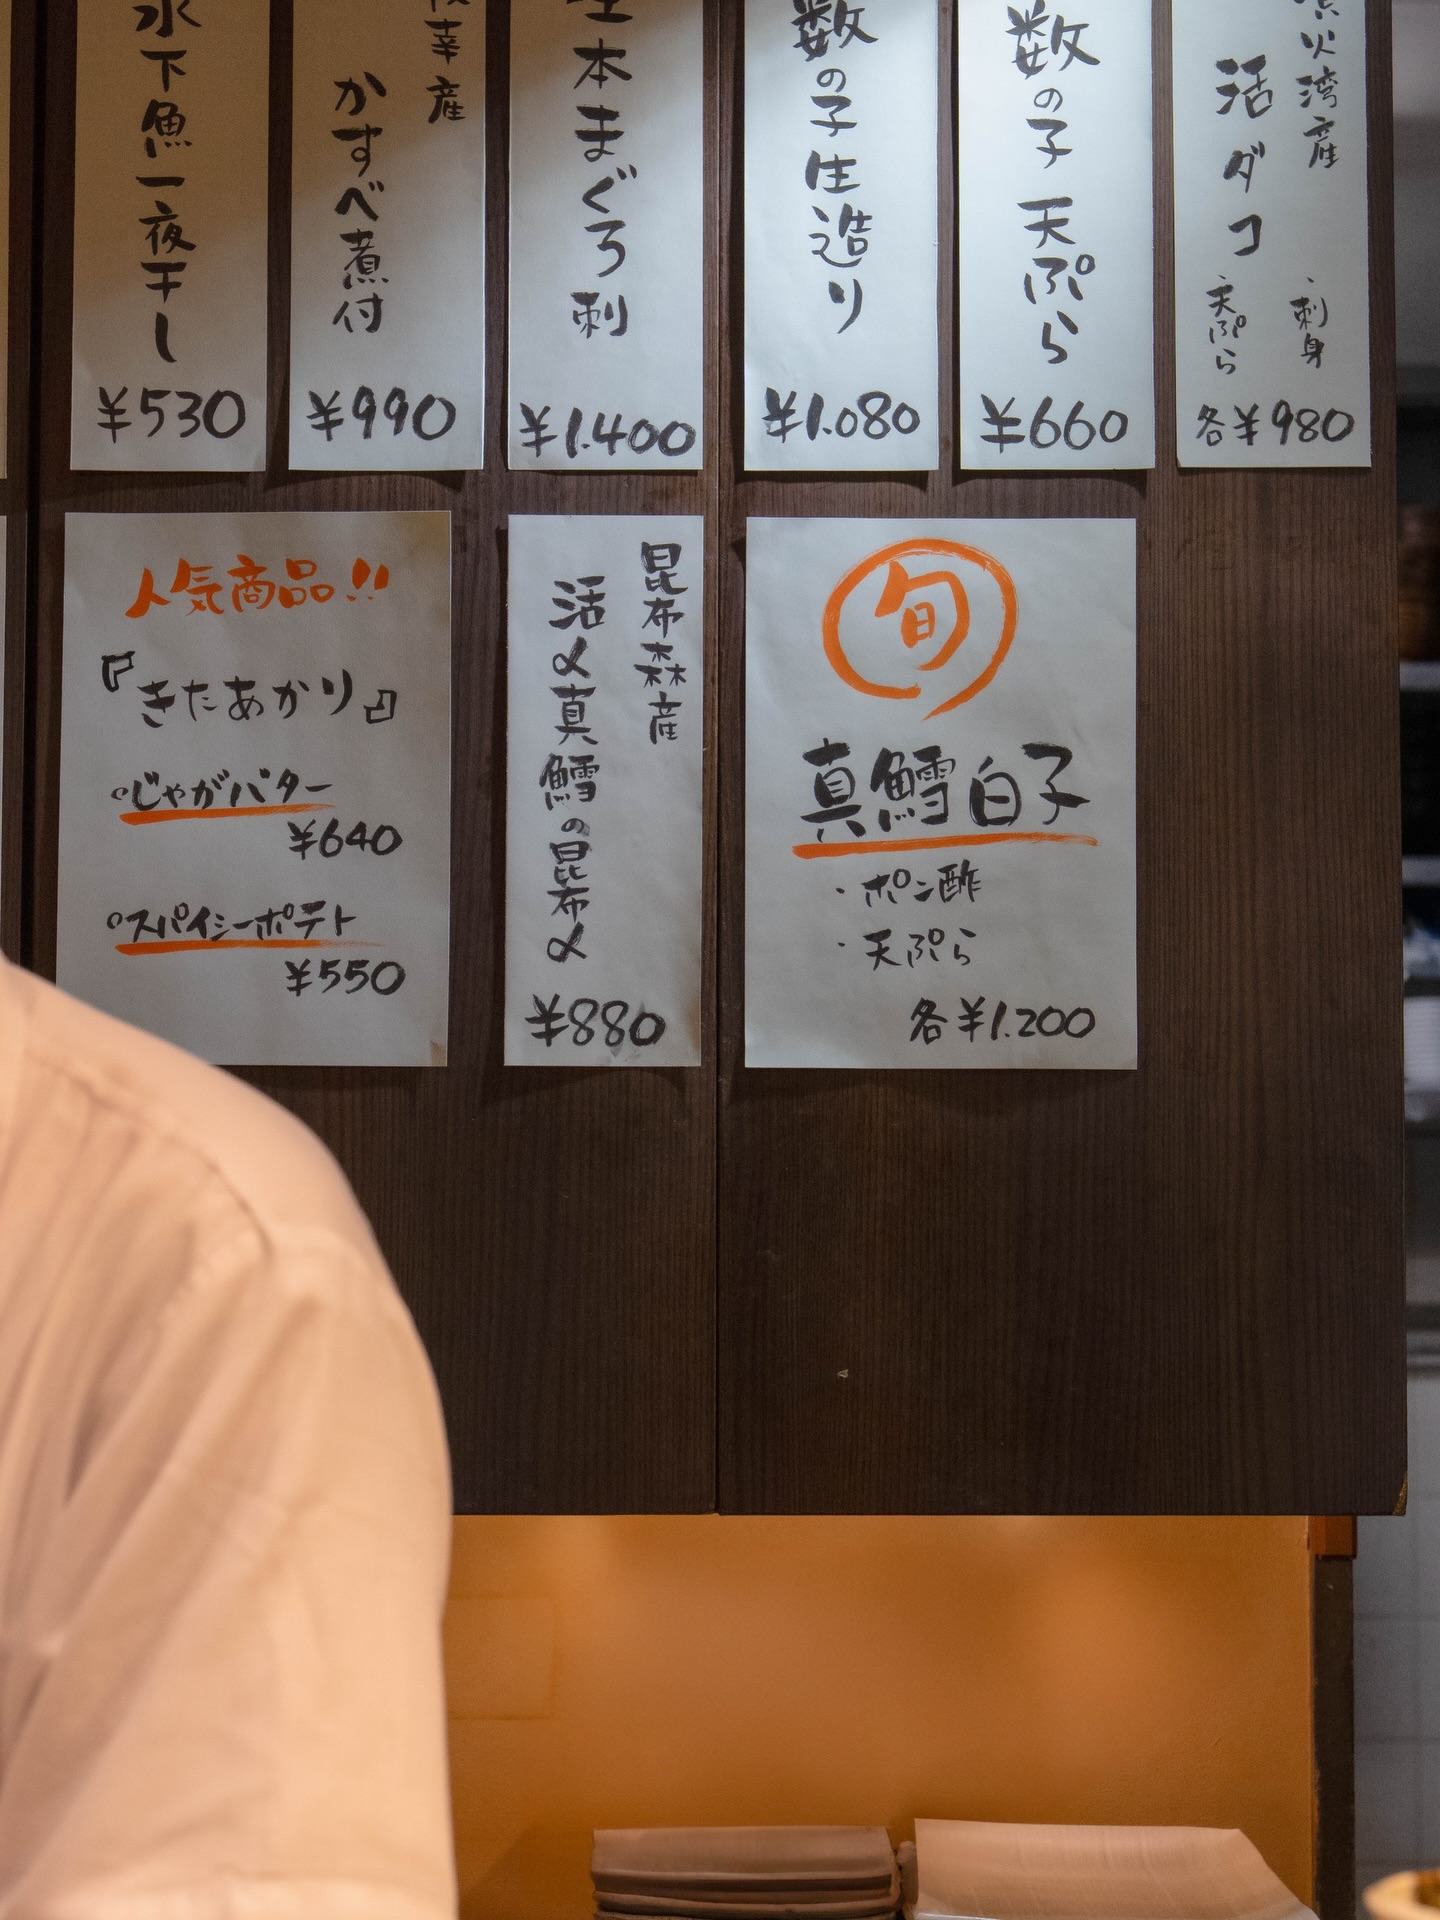 噴火湾産
活ダコ
・刺身
・天ぷら
各¥980
数の子 天ぷら
¥660
数の子生造り
¥1.080
生本まぐろ刺
¥1.400
幸産
かすべ煮付
¥990
氷下魚一夜干し
¥530
旬
真鱈白子
・ポン酢
・天ぷら
各¥1.200
昆布森産
活〆真鱈の昆布〆
¥880
人気商品!!
『きたあかり』
◦じゃがバター
¥640
◦スパイシーポテト
¥550